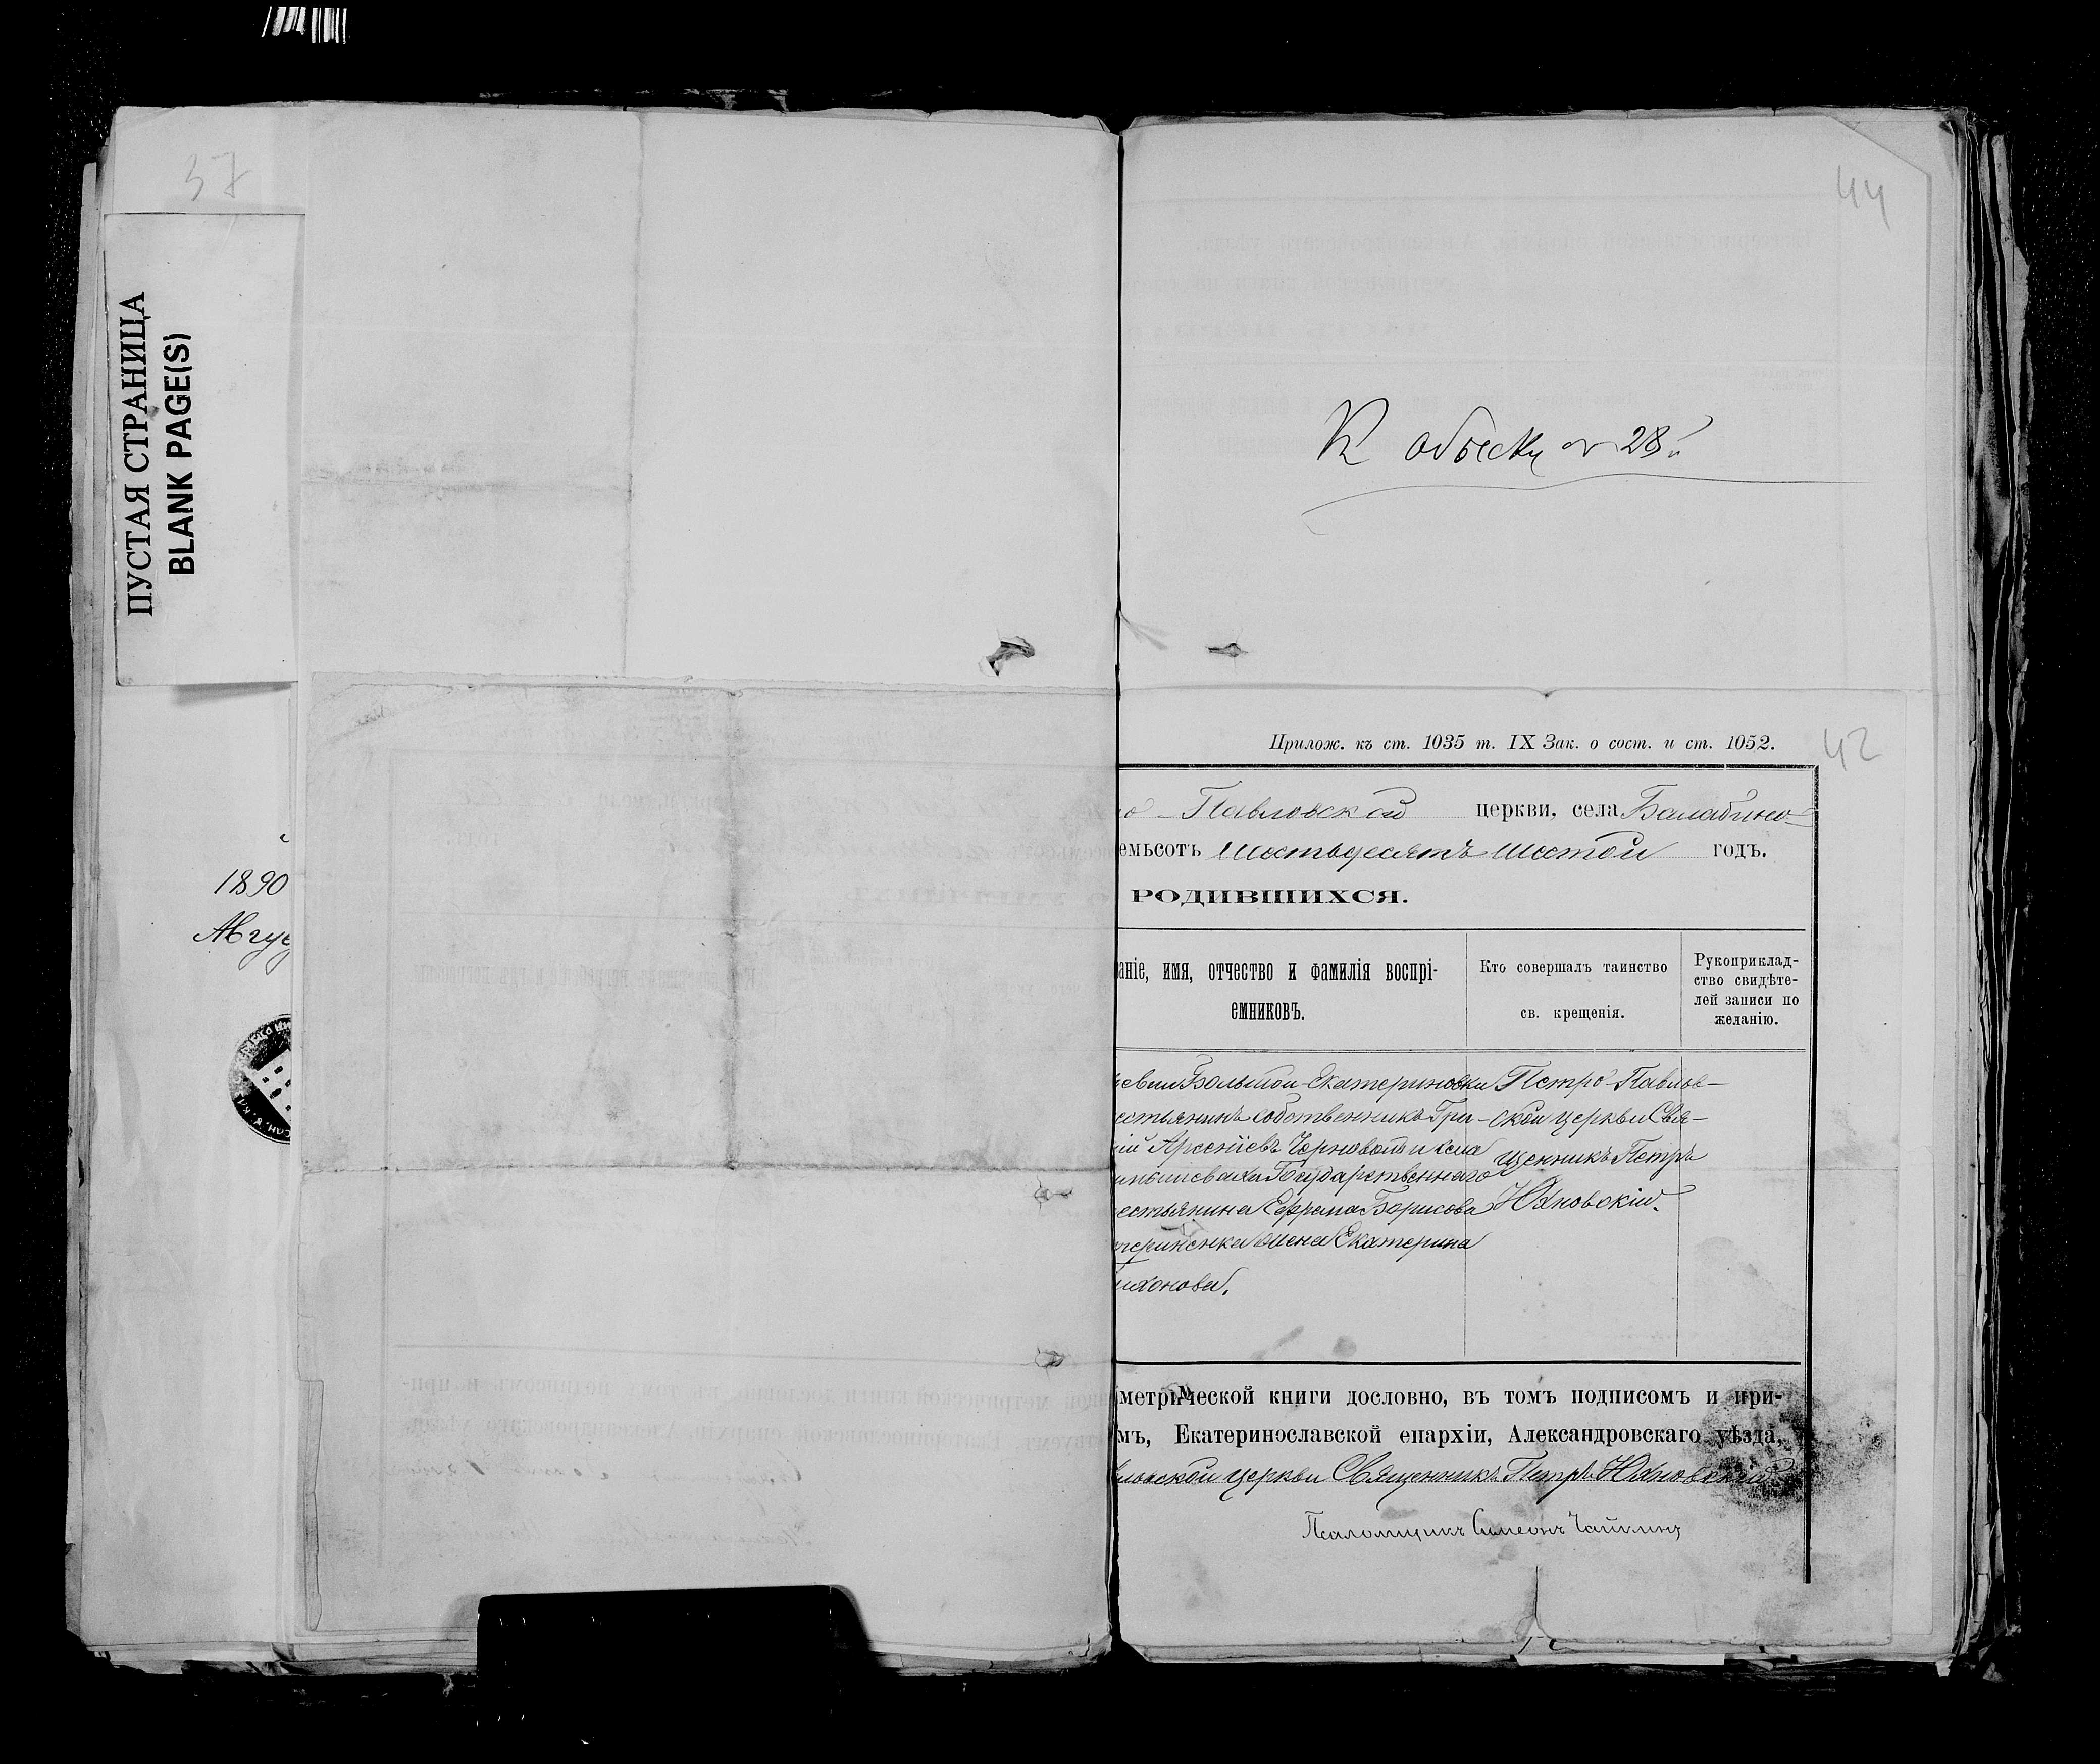 57
ПУСТАЯ СТРАНИЦА
BLANK PAGE(S)
1890
Авгус
44
К обыску № 28й
42
Прилож. къ ст. 1035 т. IX Зак. о сост. и ст. 1052.
о-Павловской церкви, села Балабино-
емьсотъ шестьдесятъ шестой годъ.
О РОДИВШИХСЯ.
аніе, имя, отчество и фамилія воспрі-
емниковъ.
Кто совершалъ таинство
св. крещенія.
Рукоприклад-
ство свидѣте-
лей записи по
желанію.
евни Большой-Екатериновки
естьянинъ собственникъ Гри-
ій Арсеніевъ Черновой и села
Государственнаго
естьянина Ефрема Борисова
жена Екатерина
ихонова.
Петро-Павлов-
ской церкви Свя-
щенникъ Петръ
Юхновскій.
метрической книги дословно, въ томъ подписомъ и при-
мъ, Екатеринославской епархіи, Александровскаго уѣзда,
льской церкви Священникъ Петръ Юхновскій
Псаломщикъ Симеонъ Чайкинъ